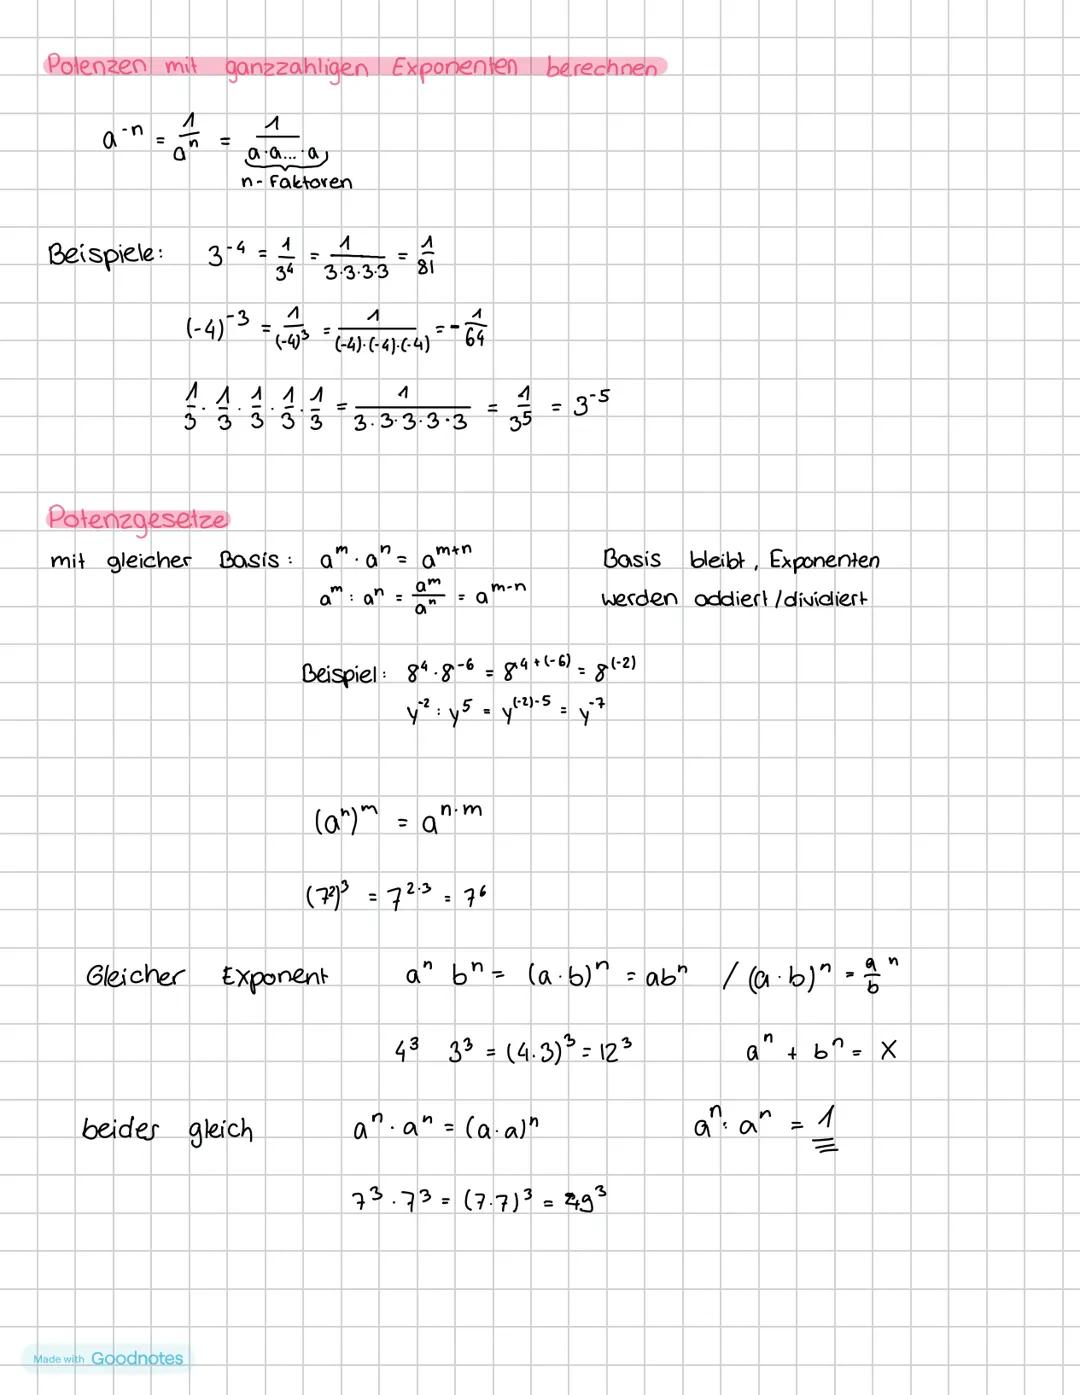 Potenzen mit ganzzahligen Exponenten berechnen
a⁻ⁿ = 1/aⁿ = 1/(a·a...·a)
n-Faktoren
Beispiele: 3⁻⁴ = 1/3⁴ = 1/(3·3·3·3) = 1/81
(-4)⁻³ = 1/(-4)³ = 1/((-4)·(-4)·(-4)) = -1/64
1/3 · 1/3 · 1/3 · 1/3 · 1/3 = 1/(3·3·3·3·3) = 1/3⁵ = 3⁻⁵
Potenzgesetze
mit gleicher Basis: aᵐ · aⁿ = aᵐ⁺ⁿ Basis bleibt, Exponenten
aᵐ : aⁿ = aᵐ/aⁿ = aᵐ⁻ⁿ werden addiert/dividiert
Beispiel: 8⁴ · 8⁻⁶ = 8⁴⁺⁽⁻⁶⁾ = 8⁽⁻²⁾
y⁻² : y⁵ = y⁽⁻²⁾⁻⁵ = y⁻⁷
(aⁿ)ᵐ = aⁿ·ᵐ
(7²)³ = 7²·³ = 7⁶
Gleicher Exponent aⁿ bⁿ = (a·b)ⁿ = abⁿ / (a·b)ⁿ = a/b ⁿ
4³ 3³ = (4·3)³ = 12³ aⁿ + bⁿ = X
beides gleich aⁿ · aⁿ = (a·a)ⁿ aⁿ : aⁿ = 1
7³ · 7³ = (7·7)³ = 49³
Made with Goodnotes